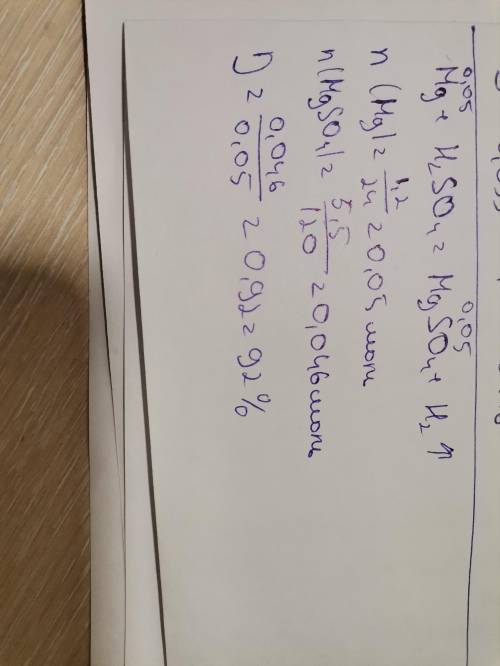 0,05 0,05
Mg + H₂SO₄ = MgSO₄ + H₂ ↑
n (Mg) = 1,2/24 = 0,05 моль
n(MgSO₄) = 5,5/120 = 0,046 моль
η = 0,046/0,05 = 0,92 = 92%